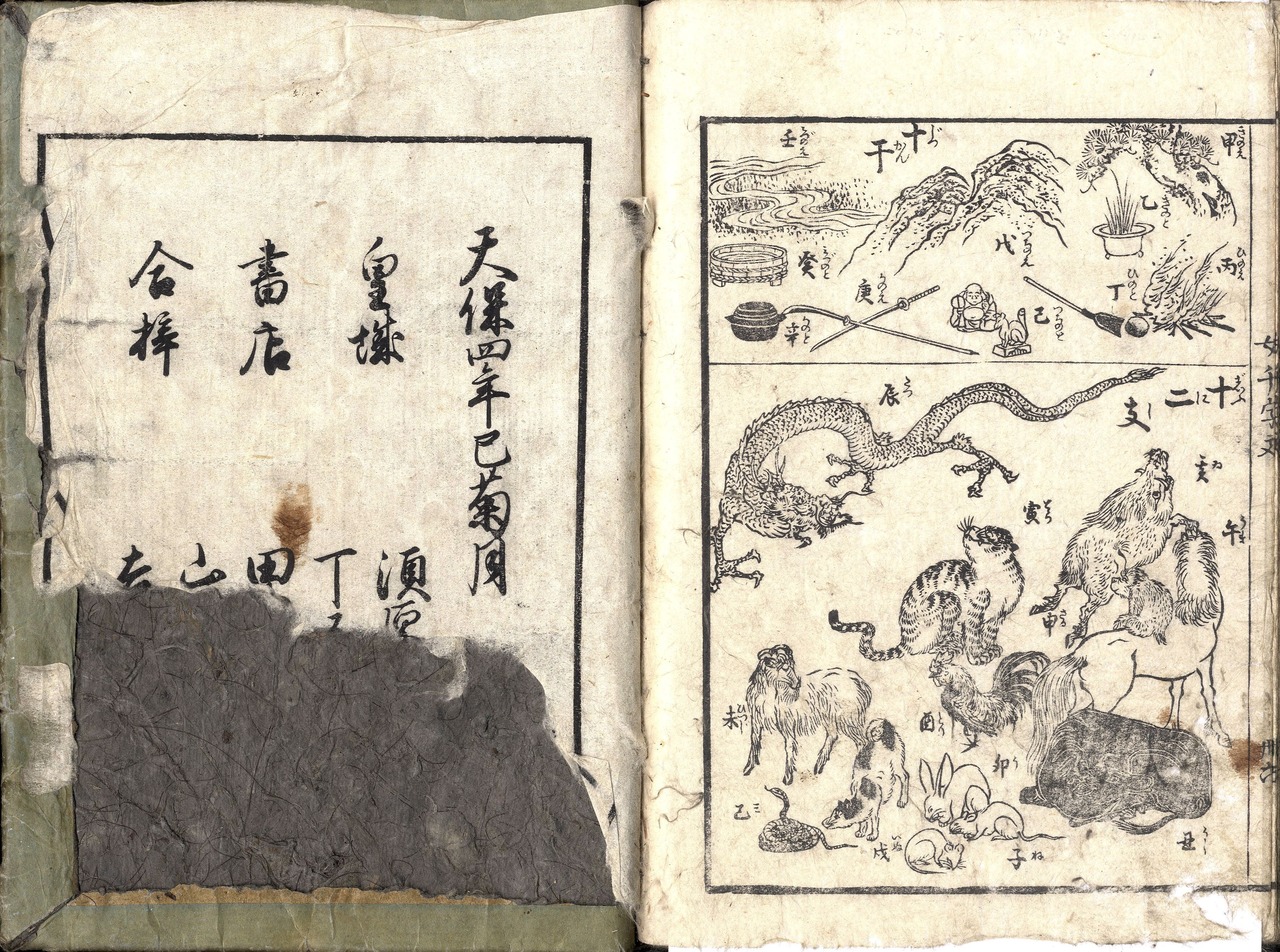 天保四年巳菊月
皇城
書店
合梓
須原
丁子
田
山
十干
じつかん
甲
きのえ
乙
きのと
丙
ひのえ
丁
ひのと
戊
つちのえ
己
つちのと
庚
かのえ
辛
かのと
壬
みづのえ
癸
みづのと
十二支
じふにし
子
ね
丑
うし
寅
とら
卯
う
辰
たつ
巳
ミ
午
うま
未
ひつじ
申
さる
酉
とり
戌
いぬ
亥
ゐ
女千字文